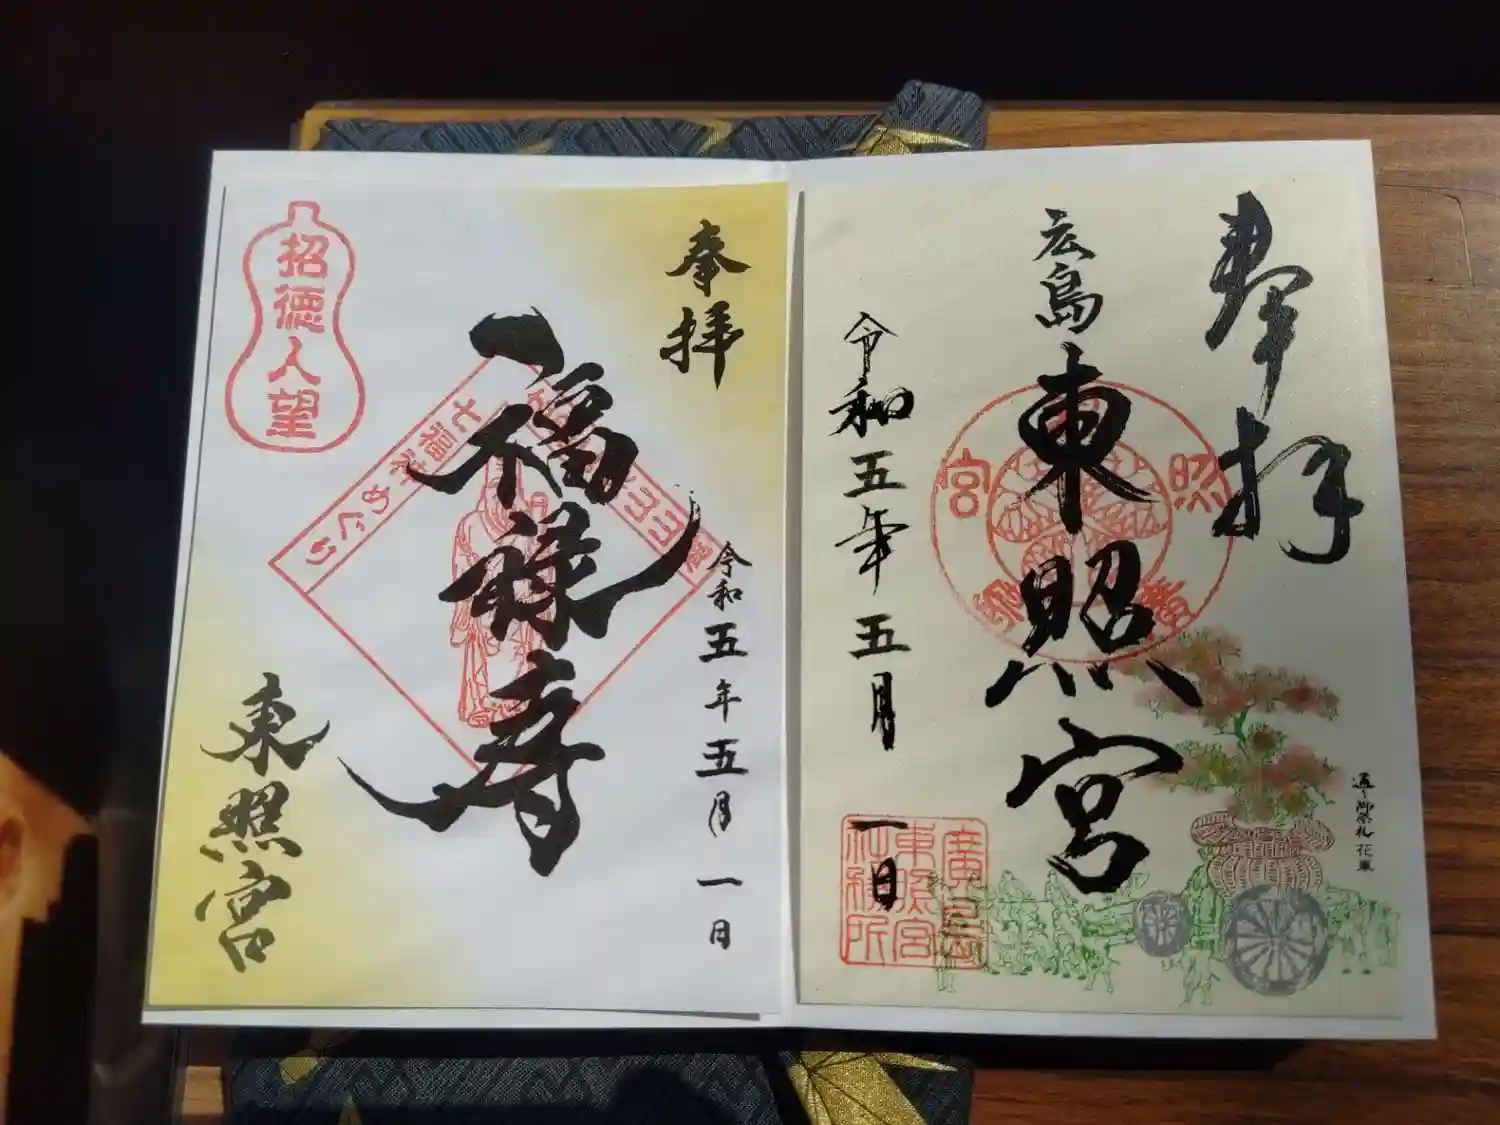 奉拝
広島
東照宮
令和五年五月
一日
照
宮
廣島
東照宮
社務所
通り御祭礼 花車
奉拝
福禄寿
令和五年五月一日
七福神めぐり
招徳人望
東照宮